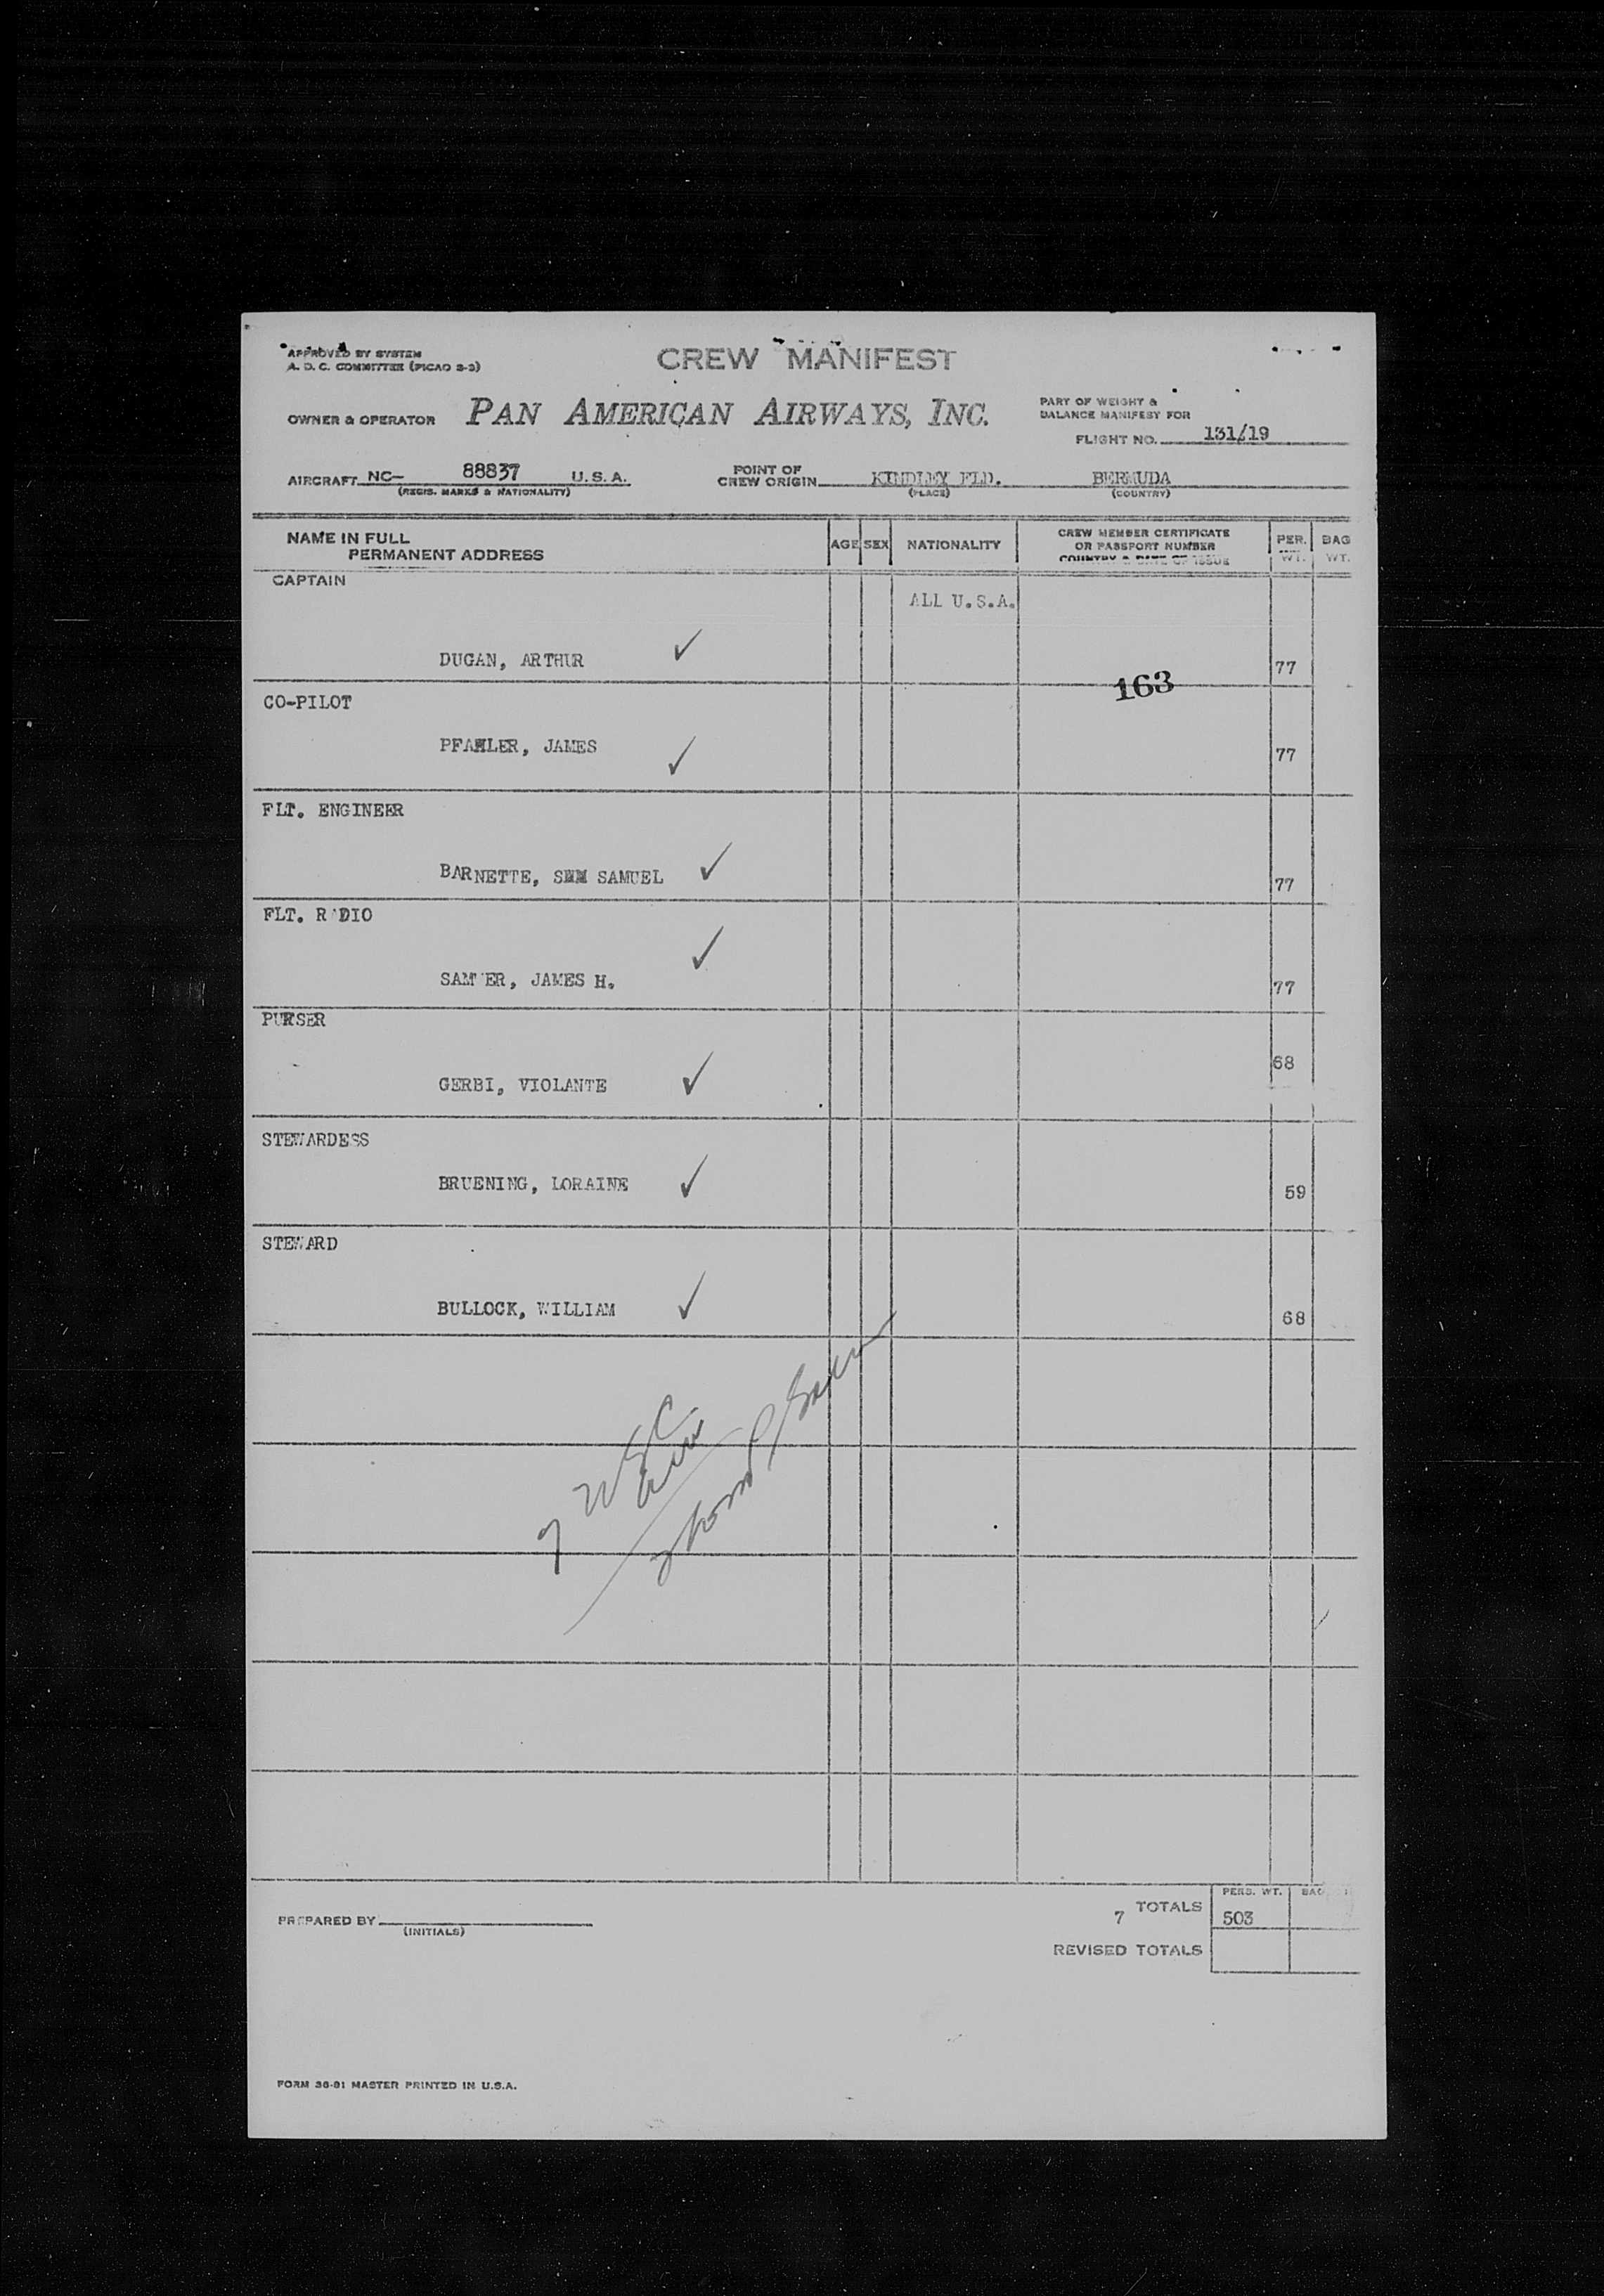 APPROVED BY SYSTEM
A. D. C. COMMITTEE (PICAO 2-3)
CREW MANIFEST
OWNER & OPERATOR PAN AMERICAN AIRWAYS, INC.
PART OF WEIGHT &
BALANCE MANIFEST FOR
FLIGHT NO. 131/19
AIRCRAFT NC- 88837 U.S.A.
(REGIS. MARKS & NATIONALITY)
POINT OF
CREW ORIGIN KINDLEY FLD. BERMUDA
(PLACE) (COUNTRY)
NAME IN FULL
PERMANENT ADDRESS
AGE SEX NATIONALITY
CREW MEMBER CERTIFICATE
OR PASSPORT NUMBER
COUNTRY & DATE OF ISSUE
PER. WT.
BAG WT.
CAPTAIN
ALL U.S.A.
DUGAN, ARTHUR ✓ 77
163
CO-PILOT
JAMES ✓ 77
FLT. ENGINEER
BARNETTE, SAMUEL ✓ 77
FLT. R DIO
JAMES H. ✓ 77
PURSER
GERBI, VIOLANTE ✓ 68
STEWARDESS
BRUENING, LORAINE ✓ 59
STEWARD
BULLOCK, WILLIAM ✓ 68
7 USC
PERS. WT. BAG
7 TOTALS 503
REVISED TOTALS
PREPARED BY
(INITIALS)
FORM 36-91 MASTER PRINTED IN U.S.A.